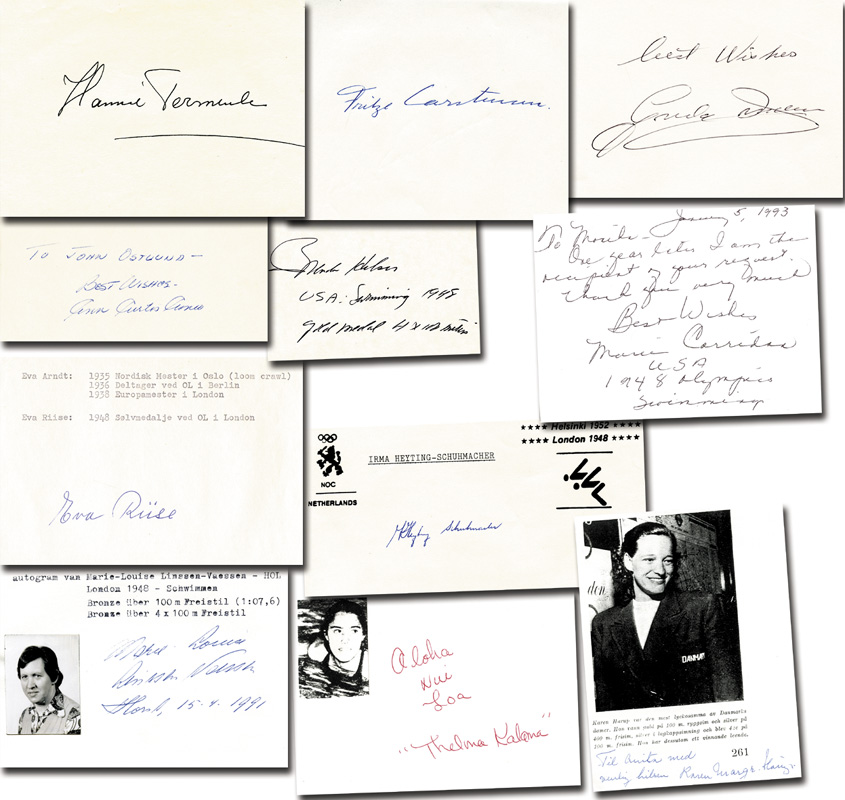 Hannie Termeulen
Fritze Carstensen.
Best Wishes
TO JOHN OSTLUND —
BEST WISHES -
Ann Curtis Cuneo
USA: Swimming 1948
gold medal 4 x 100 meters
January 5, 1993
To Moritz -
One year later I am the
recipient of your request.
Thank you very much
Best Wishes
Marie Corridon
USA
1948 Olympics
Swimming
Eva Arndt: 1935 Nordisk Mester i Oslo (loom crawl)
1936 Deltager ved OL i Berlin
1938 Europamester i London
Eva Riise: 1948 Sølvmedalje ved OL i London
Eva Riise
★★★★ Helsinki 1952 ★★★★
★★★★ London 1948 ★★★★
NOC
NETHERLANDS
IRMA HEYTING-SCHUHMACHER
Heyting Schuhmacher
autogram van Marie-Louise Linssen-Vaessen - HOL
London 1948 - Schwimmen
Bronze über 100 m Freistil (1:07,6)
Bronze über 4 x 100 m Freistil
Marie-Louise
Linssen Vaessen
Horst, 15-4-1991
Aloha
Nui
Loa
"Thelma Kalama"
DANMARK
Karen Harup var den mest lycksamma av Danmarks
damer. Hon vann guld på 100 m. ryggsim och silver på
400 m. frisim, silver i lagkappsimning och blev 4:er på
100 m. frisim. Hon har dessutom ett vinnande leende.
261
Til Anita med
venlig hilsen Karen Margr. Harup.